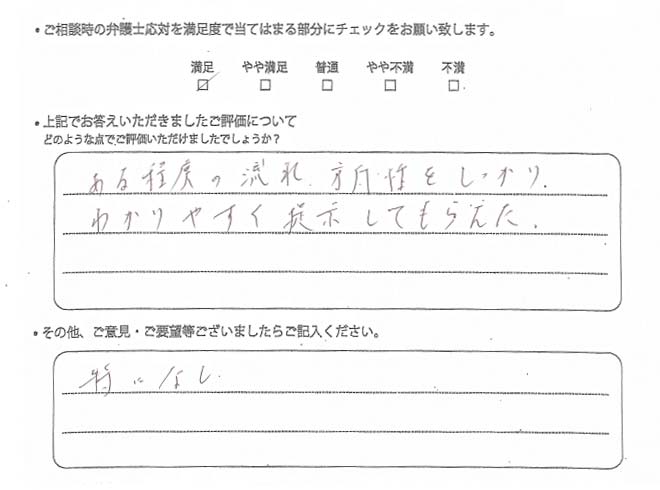 ・ご相談時の弁護士応対を満足度で当てはまる部分にチェックをお願い致します。
満足 やや満足 普通 やや不満 不満
☑ □ □ □ □
・上記でお答えいただきましたご評価について
どのような点でご評価いただけましたでしょうか？
ある程度の流れ、方向性をしっかり、
わかりやすく提示してもらえた。
・その他、ご意見・ご要望等ございましたらご記入ください。
特になし